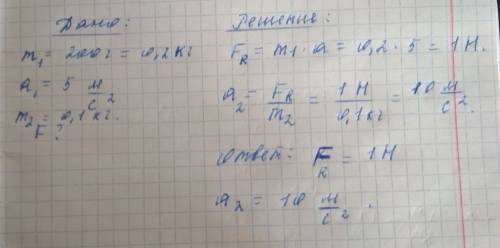 Дано:
m₁ = 200г = 0,2кг
a₁ = 5 м/с²
m₂ = 0,1кг.
F ?
Решение:
F_R = m1 · a = 0,2 · 5 = 1Н.
a₂ = F_R/m₂ = 1Н/0,1кг = 10 м/с².
Ответ: F_R = 1Н
a₂ = 10 м/с².